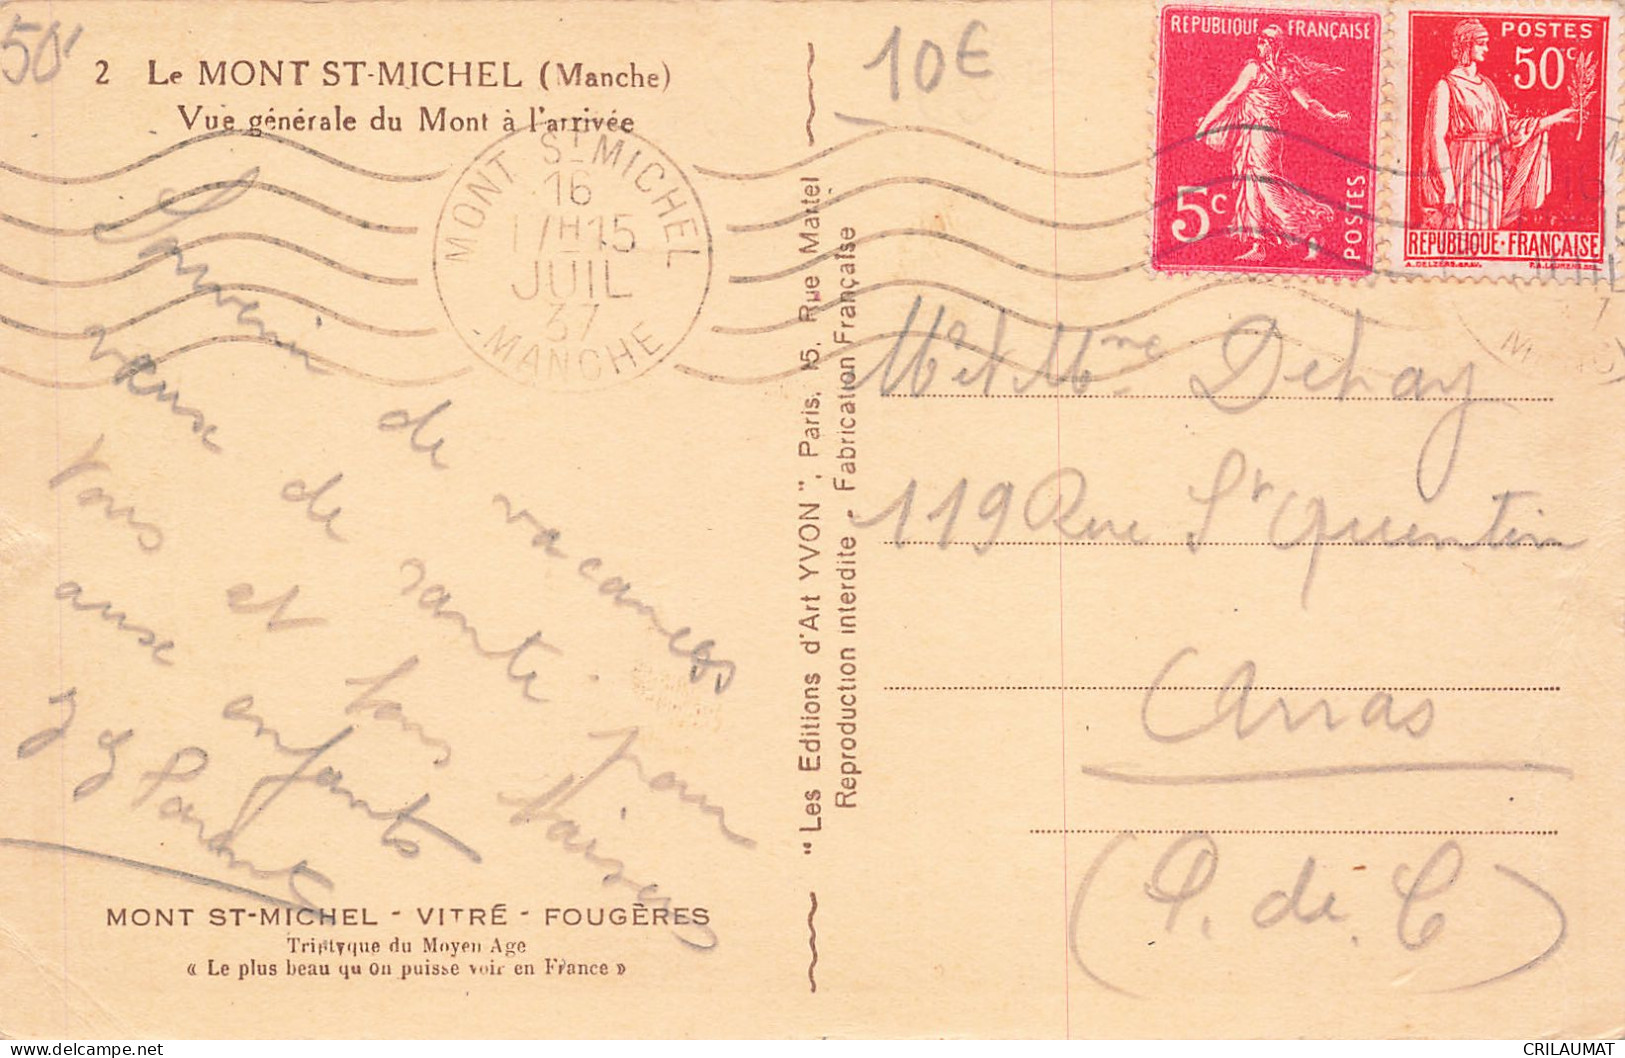 50
2 Le MONT ST-MICHEL (Manche)
Vue générale du Mont à l'arrivée
10€
RÉPUBLIQUE FRANÇAISE
5c
POSTES
POSTES
50c
RÉPUBLIQUE·FRANÇAISE
MONT ST MICHEL
16
17H15
JUIL
37
-MANCHE
Souvenir de vacances
de santé pour
vous et bons baisers
aux enfants
Parent
"Les Editions d'Art YVON", Paris, 15, Rue Martel
Reproduction interdite - Fabrication Française
Mr et Mme Dehay
119 Rue St Quentin
Arras
(P. de C)
MONT ST-MICHEL - VITRÉ - FOUGÈRES
Triptyque du Moyen Age
« Le plus beau qu on puisse voir en France »
CRILAUMAT